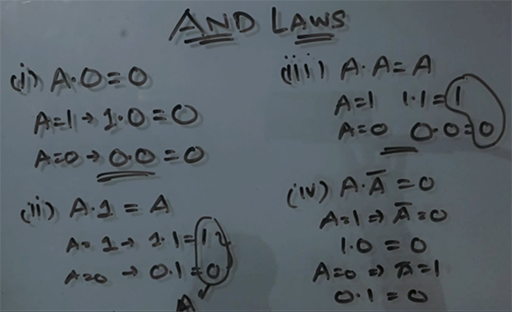 AND LAWS
(i) A·0=0
A=1→1·0=0
A=0→0·0=0
(ii) A·1=A
A=1→1·1=1
A=0→0·1=0
A
(iii) A·A=A
A=1 1·1=1
A=0 0·0=0
(iv) A·A̅=0
A=1⇒A̅=0
1·0=0
A=0⇒A̅=1
0·1=0